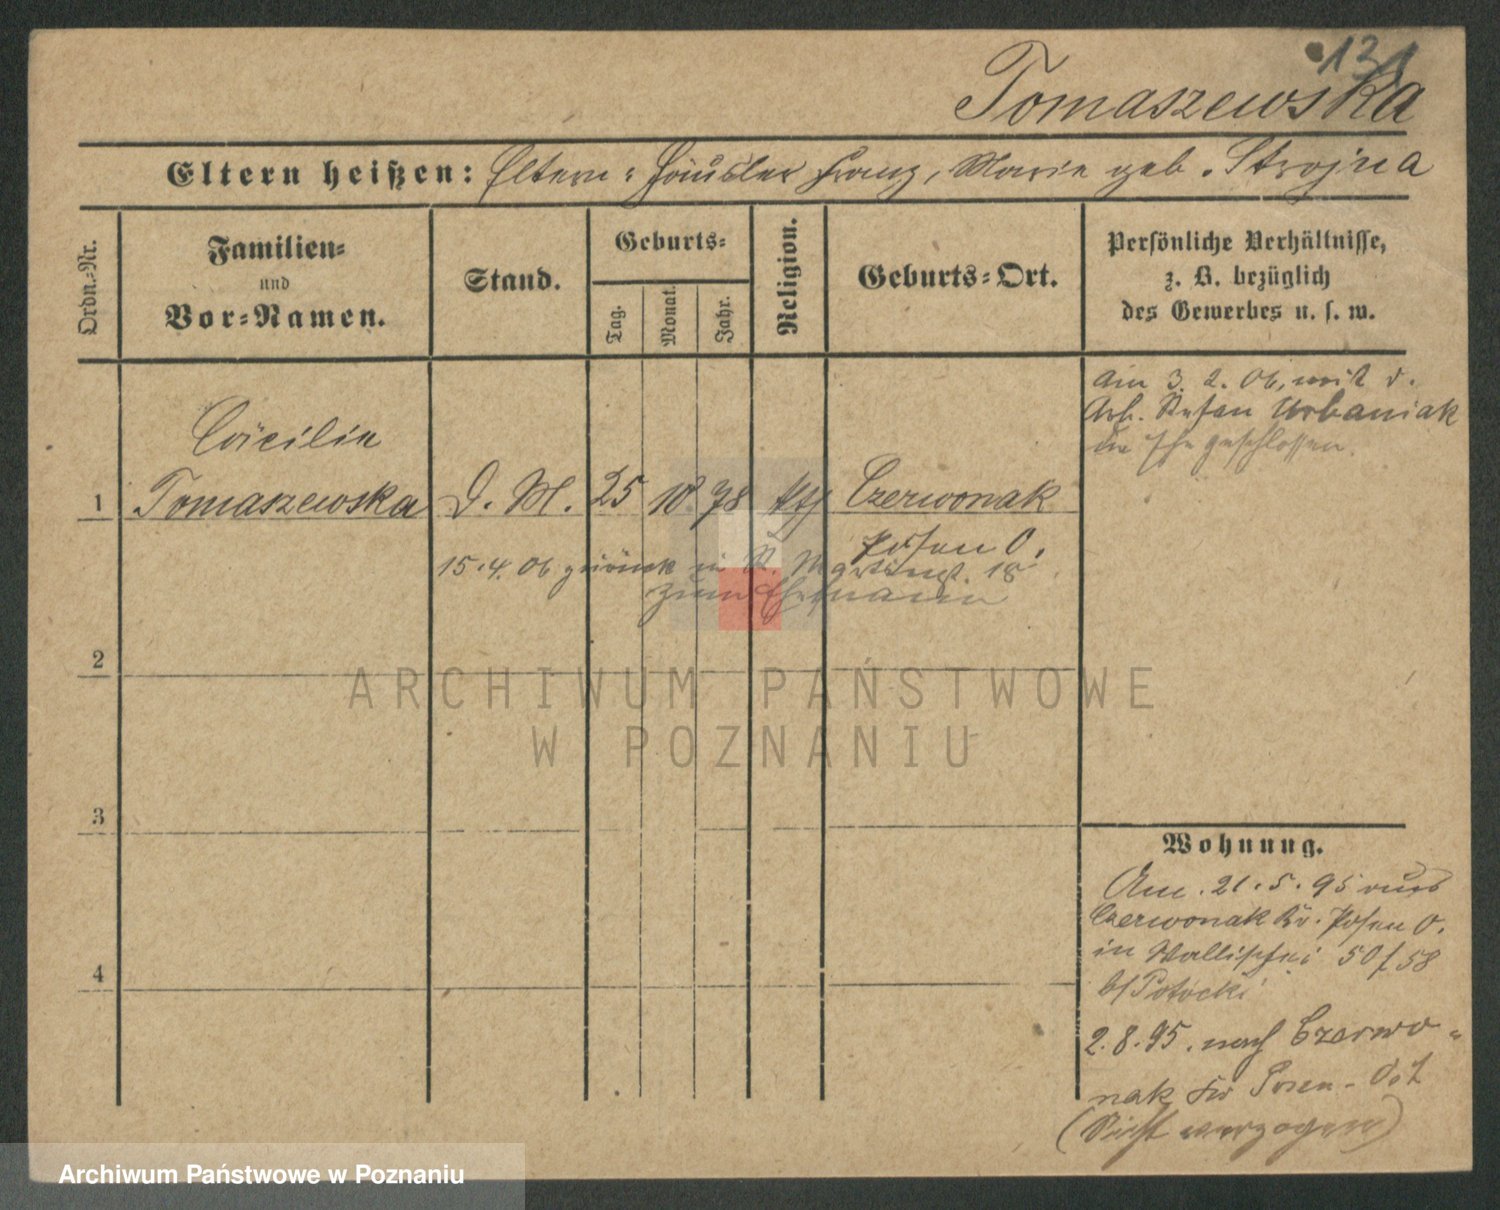 131
Tomaszewska
Eltern heißen: Eltern: Häusler Franz, Marie geb. Strojna
Ordn.-Nr.
Familien-
und
Vor-Namen.
Stand.
Geburts-
Tag.
Monat.
Jahr.
Religion.
Geburts-Ort.
Persönliche Verhältnisse,
z. B. bezüglich
des Gewerbes u. s. w.
am 3. 2. 06, mit d.
Arb. Stefan Urbaniak
die Ehe geschlossen.
Cäcilie
1 Tomaszewska D. M. 25 10 78 kth Czerwonak
Posen O.
15.4.06 zurück in St. Martinst. 18
zum Ehemann
2
3
4
Wohnung.
Am. 21.5.95 aus
Czerwonak Kr. Posen O.
in Wallischei 50/58
b/Potocki
2.8.95. nach Czerwo-
nak Kr Posen-Ost
(Nicht verzogen)
ARCHIWUM PAŃSTWOWE
W POZNANIU
Archiwum Państwowe w Poznaniu